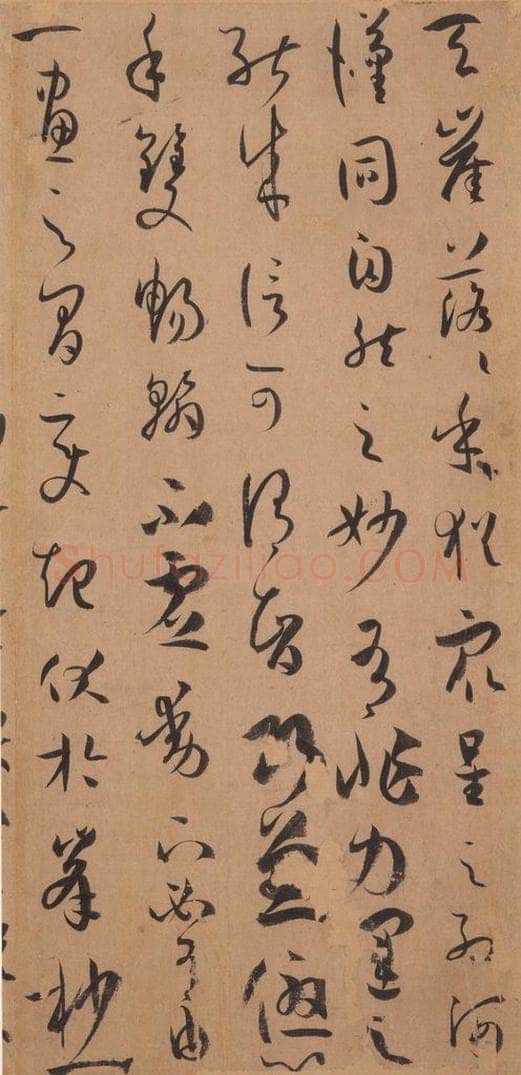 天崖落〻乎猶衆星之列河
漢同自然之妙有非力運之
能成信可謂智巧兼優心
手雙暢翰不虛動下必有由
一畫之間變起伏於峯杪一
Shufaziliao.COM